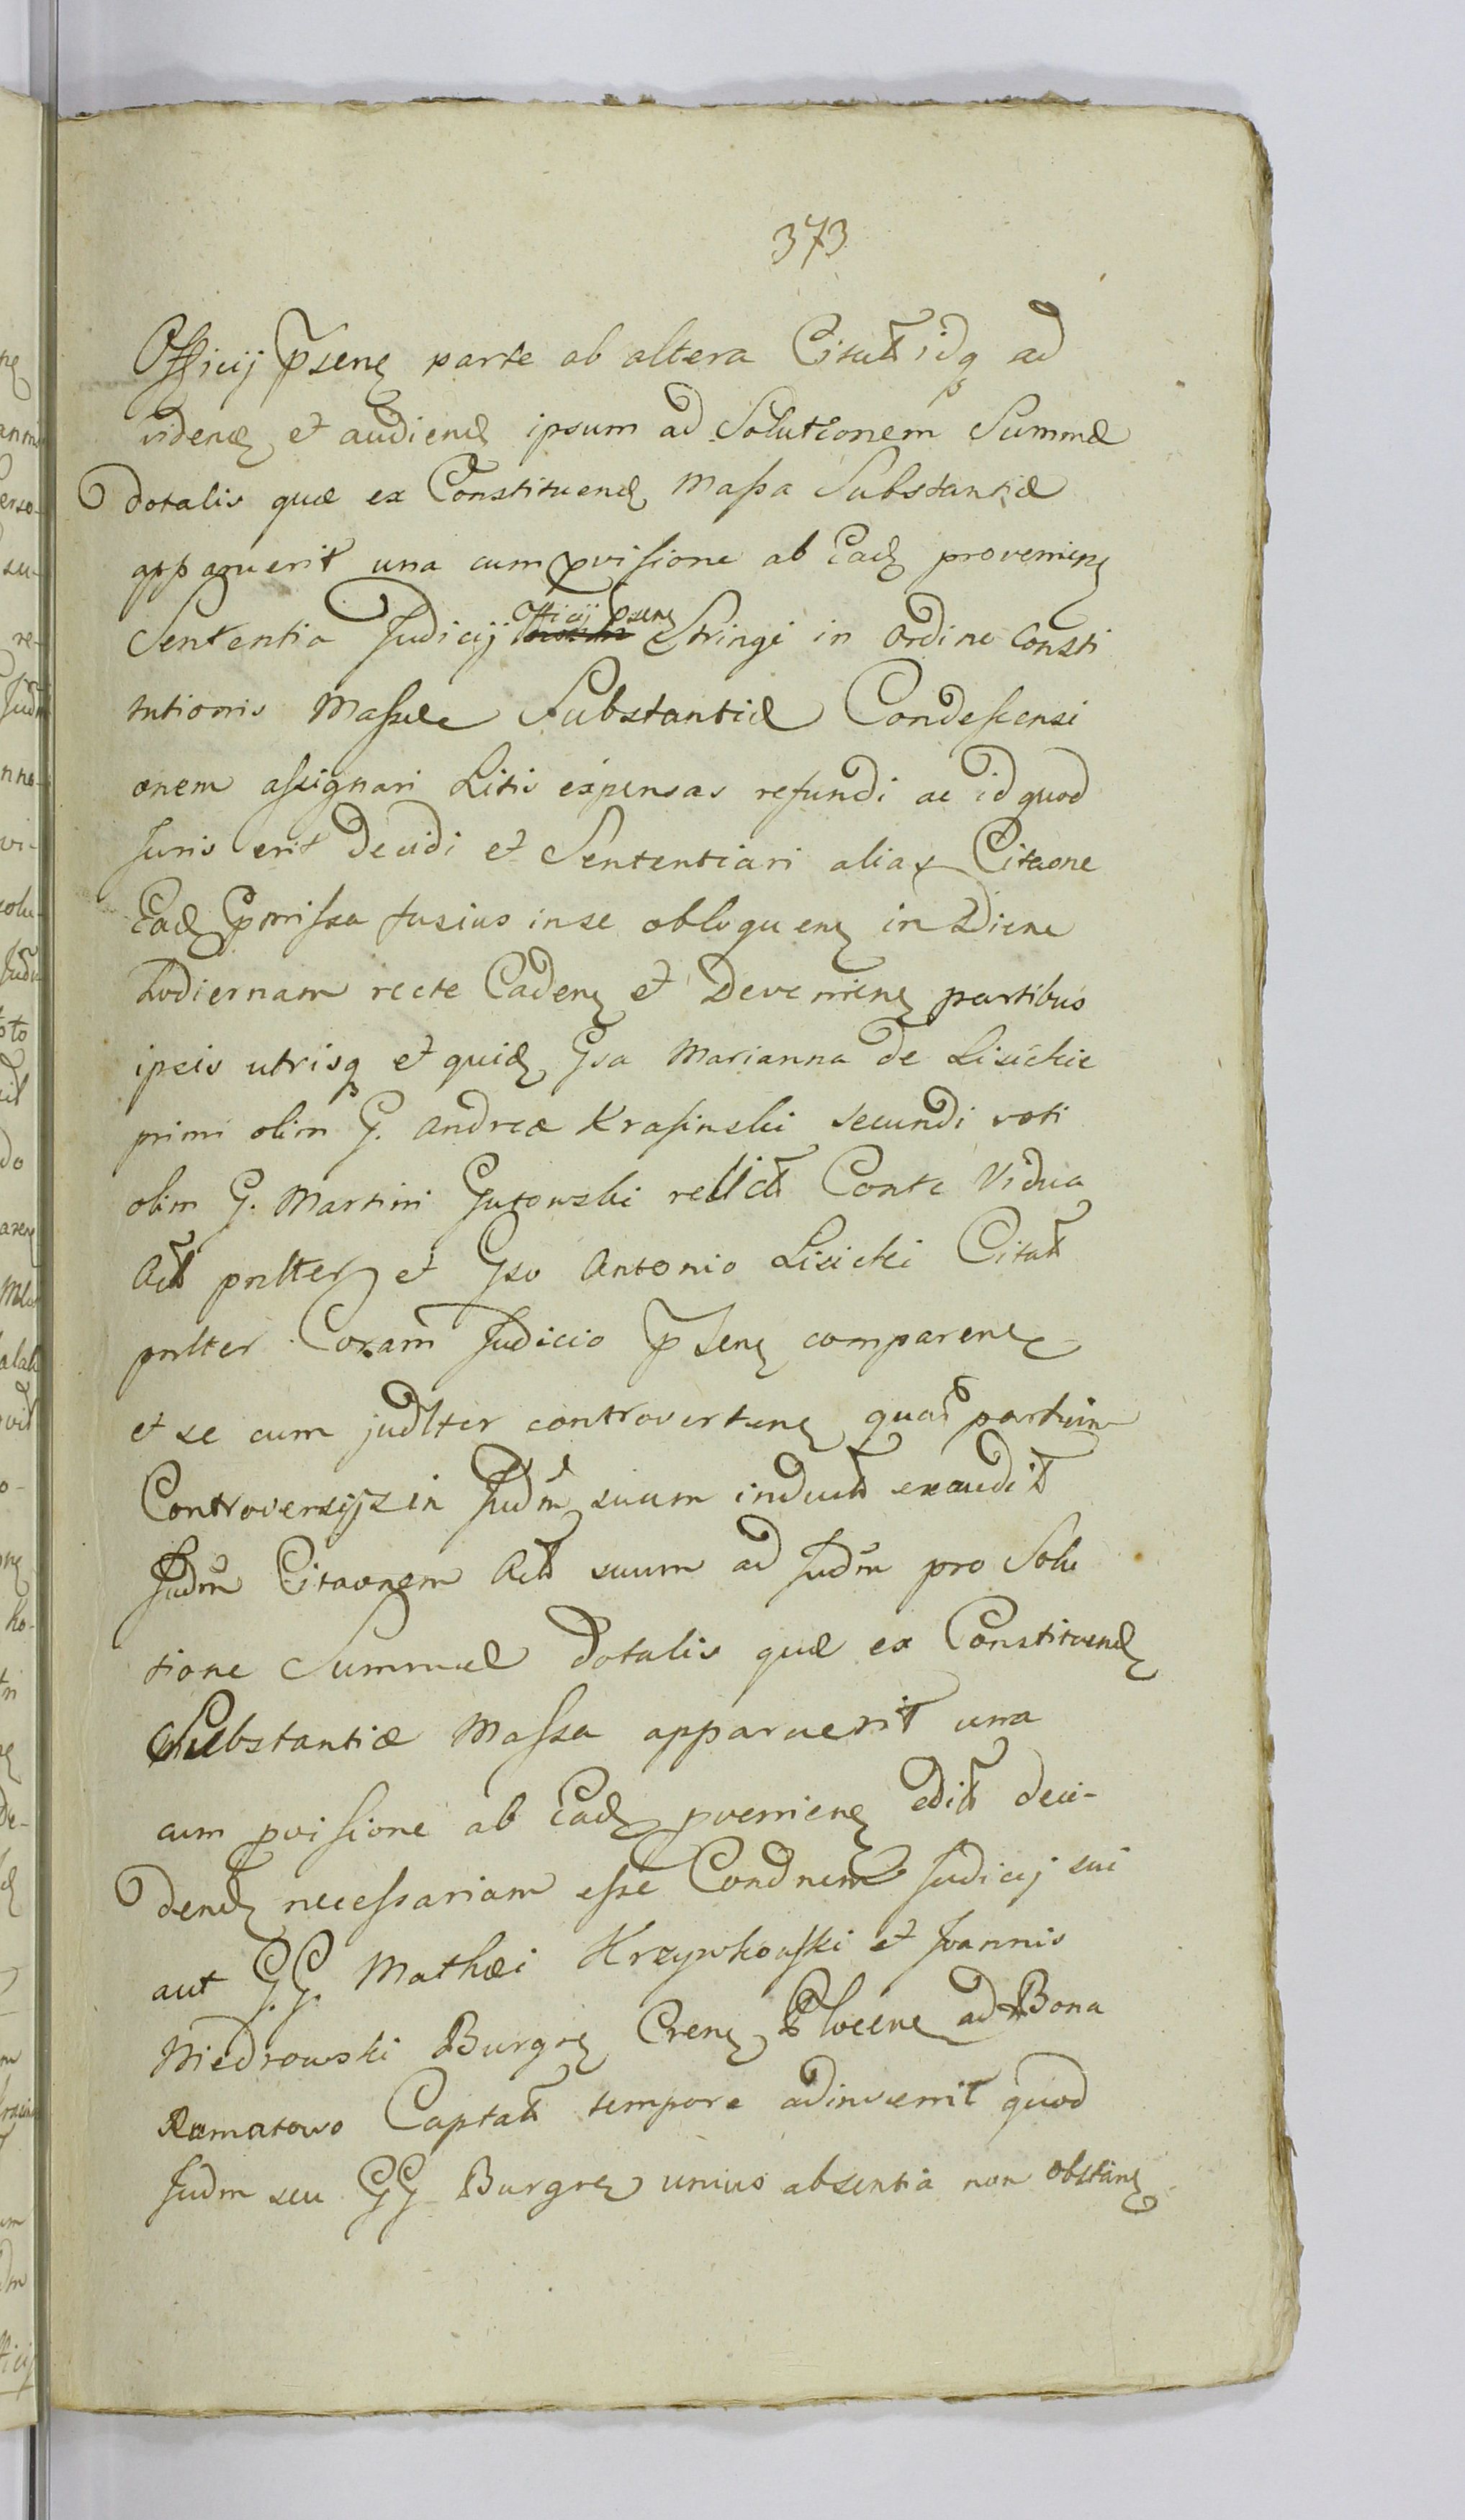 373
Officij psenꝫ parte ab altera Citatt idqꝫ ad
videndꝫ et audiendꝫ ipsum ad Solutionem Summæ
dotalis quæ ex Constituendꝫ Massa Substantiæ
apparuerit una cum pvisione ab Eadꝫ provenienꝫ
Sententia Judicij Officij psenꝫ Stringi in Ordine Consti
tutionis Massæ Substantiæ Condescensi
onem assignari Litis expensas refundi ac id quod
Juris erit Decidi et Sententiari aliax Citaone
Eadꝫ pmissa fusius in se obloquenꝫ in Diem
hodiernam recte Cadenꝫ et Devenienꝫ partibus
ipsis utrisqꝫ et quidꝫ Gsa Marianna de Lisickie
primi olim G. Andreæ Krasinski secundi voti
olim G. Martini Gutowski relicta Conte Vidua
Actt pnltter et Gso Antonio Lisicki Citatt
pnlter Coram Judicio psenꝫ comparenꝫ
et se cum judlter controvertenꝫ quar partium
Controversijs in Judm suum inductt exaudit
Judm Citaonem Actt suum ad Judm pro Solu
tione Summæ Dotalis quæ ex Constituendꝫ
Substantiæ Massa apparuerit una
cum pvisione ab Eadꝫ pvenienꝫ editt deci-
dendꝫ necessariam esse Condnem Judicij sui
aut G.G. Mathæi Krzywkowski et Joannis
Niedrowski Burgrꝫ Crenꝫ Plocenꝫ ad Bona
Ramatowo Captatt tempore adinvenit quod
Judm seu GG Burgrꝫ unius absentia non obstanꝫ